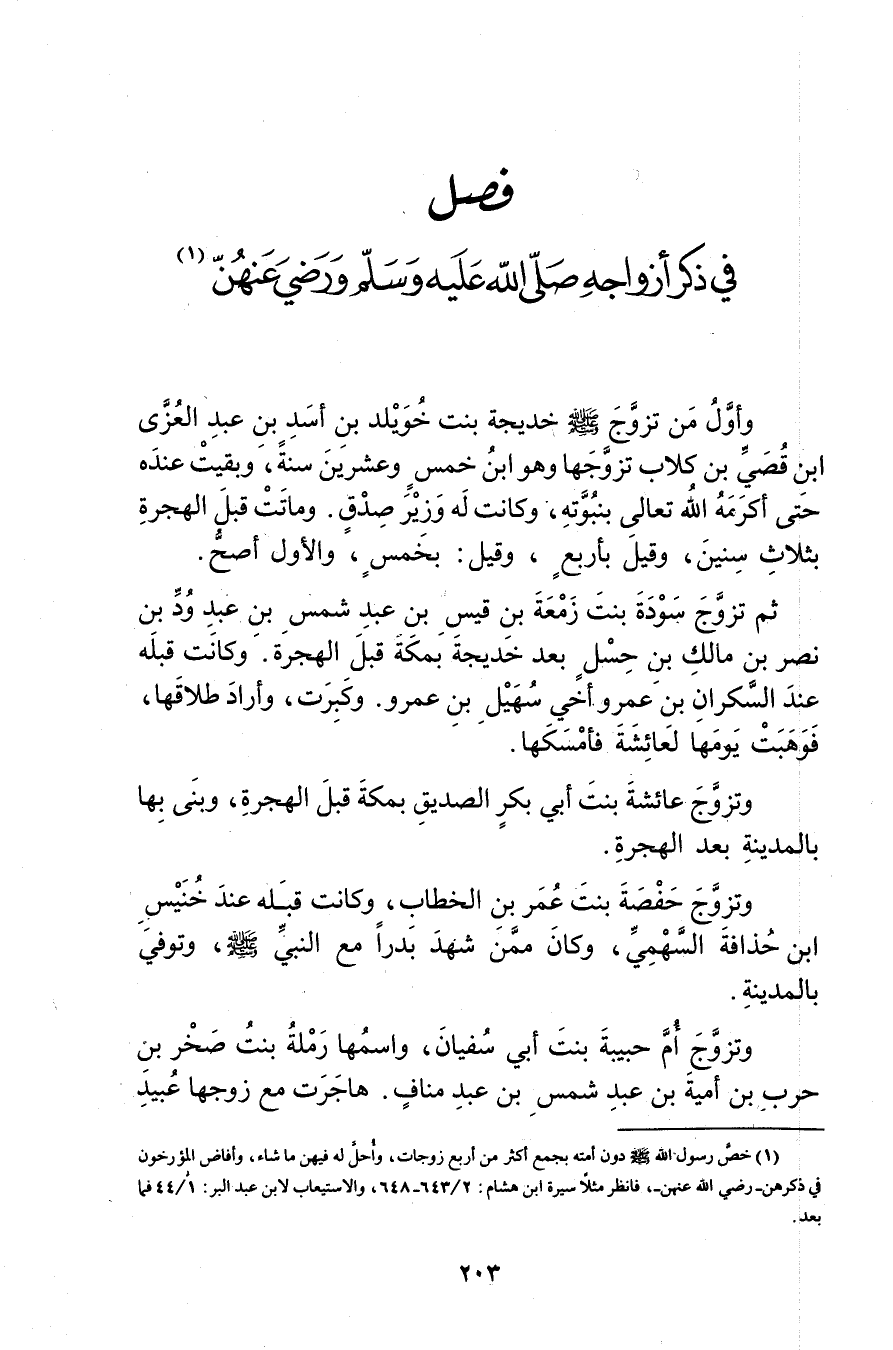 فصل
في ذكر أزواجه صَلَّى اللّه عَلَيه وَسَلّم وَرَضيَ عَنهُنّ (١)
وأوَّلُ مَن تزوَّجَ ﷺ خديجة بنت خُوَيْلد بن أسَدِ بنِ عبدِ العُزَّى
ابن قُصَيِّ بن كلاب تزوَّجَها وهو ابنُ خمسٍ وعشرينَ سنةً، وبقيتْ عندَه
حَتى أكرَمَهُ اللهُ تعالى بنبُوَّتهِ، وكانت لَه وَزيْرَ صِدْقٍ. وماتَتْ قبلَ الهجرةِ
بثلاثِ سِنينَ، وقيلَ بأربعٍ ، وقيل: بخَمسٍ، والأول أصحُّ.
ثم تزوَّجَ سَوْدَةَ بنتَ زَمْعَةَ بن قيسِ بن عبدِ شمسِ بنِ عبدِ وُدِّ بن
نصر بن مالكِ بنِ حِسْلٍ بعد خَديجةَ بمكَةَ قبلَ الهجرة. وكانَت قبلَه
عندَ السَّكرانِ بن عمرو أخي سُهَيْلِ بنِ عمرو. وكَبِرَت، وأرادَ طلاقَها،
فَوَهَبَتْ يَومَها لعَائِشَةَ فأمْسَكَها.
وتزوَّجَ عائشةَ بنتَ أبي بكرٍ الصديقِ بمكةَ قبلَ الهجرةِ، وبنَى بِها
بالمدينةِ بعد الهجرةِ.
وتزوَّجَ حَفْصَةَ بنتَ عُمَر بن الخطاب، وكانت قبَله عندَ خُنَيْسِ
ابن حُذافةَ السَّهْمِيِّ، وكانَ ممَّنَ شهدَ بَدراً مع النبيِّ ﷺ، وتوفيَ
بالمدينةِ.
وتزوَّجَ أُمَّ حبيبةَ بنتَ أبي سُفيانَ، واسمُها رَمْلةُ بنتُ صَخْر بن
حربِ بن أميةَ بن عبدِ شمسِ بن عبدِ منافٍ. هاجَرَت مع زوجها عُبيدِ
(١) خصَّ رسول الله ﷺ دون أمته بجمع أكثر من أربع زوجات، وأُحلَّ له فيهن ما شاء، وأفاض المؤرخون
في ذكرهن ـ رضي الله عنهن ـ، فانظر مثلاً سيرة ابن هشام: ٢/ ٦٤٣ـ٦٤٨، والاستيعاب لابن عبد البر: ١/ ٤٤ فما
بعد.
٢٠٣